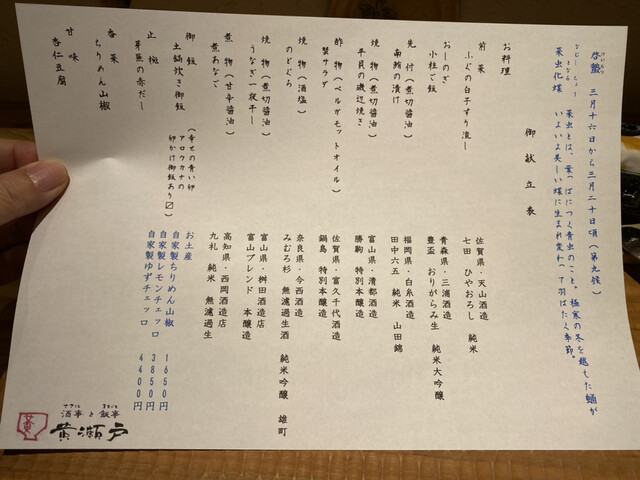 啓蟄 三月十六日から三月二十日頃(第九候)
けいちつ
菜虫化蝶 菜虫とは、葉っぱにつく青虫のこと。極寒の冬を越した蛹が
なむし ちょう となる
いよいよ美しい蝶に生まれ変わって羽ばたく季節。
御献立表
お料理
前菜
ふぐの白子すり流し
佐賀県・天山酒造
七田 ひやおろし 純米
おしのぎ
小柱ご飯
青森県・三浦酒造
豊盃 おりがらみ生 純米大吟醸
先付(煮切醤油)
南鮪の漬け
福岡県・白糸酒造
田中六五 純米 山田錦
焼物(煮切醤油)
平貝の磯辺焼き
富山県・清都酒造
勝駒 特別本醸造
酢物(ベルガモットオイル)
蟹サラダ
佐賀県・富久千代酒造
鍋島 特別本醸造
焼物(酒塩)
のどぐろ
奈良県・今西酒造
みむろ杉 無濾過生酒 純米吟醸 雄町
焼物(煮切醤油)
うなぎ一夜干し
富山県・桝田酒造店
富山ブレンド 本醸造
煮物(甘辛醤油)
煮あなご
高知県・西岡酒造店
久礼 純米 無濾過生
御飯
土鍋炊き御飯
(幸せの青い卵
アロウカナの
卵かけ御飯あり〼)
止椀
芽葱の赤だし
香菜
ちりめん山椒
甘味
杏仁豆腐
お土産
自家製ちりめん山椒 1650円
自家製レモンチェッロ 3850円
自家製ゆずチェッロ 4400円
酒事と飯事
黄瀬戸